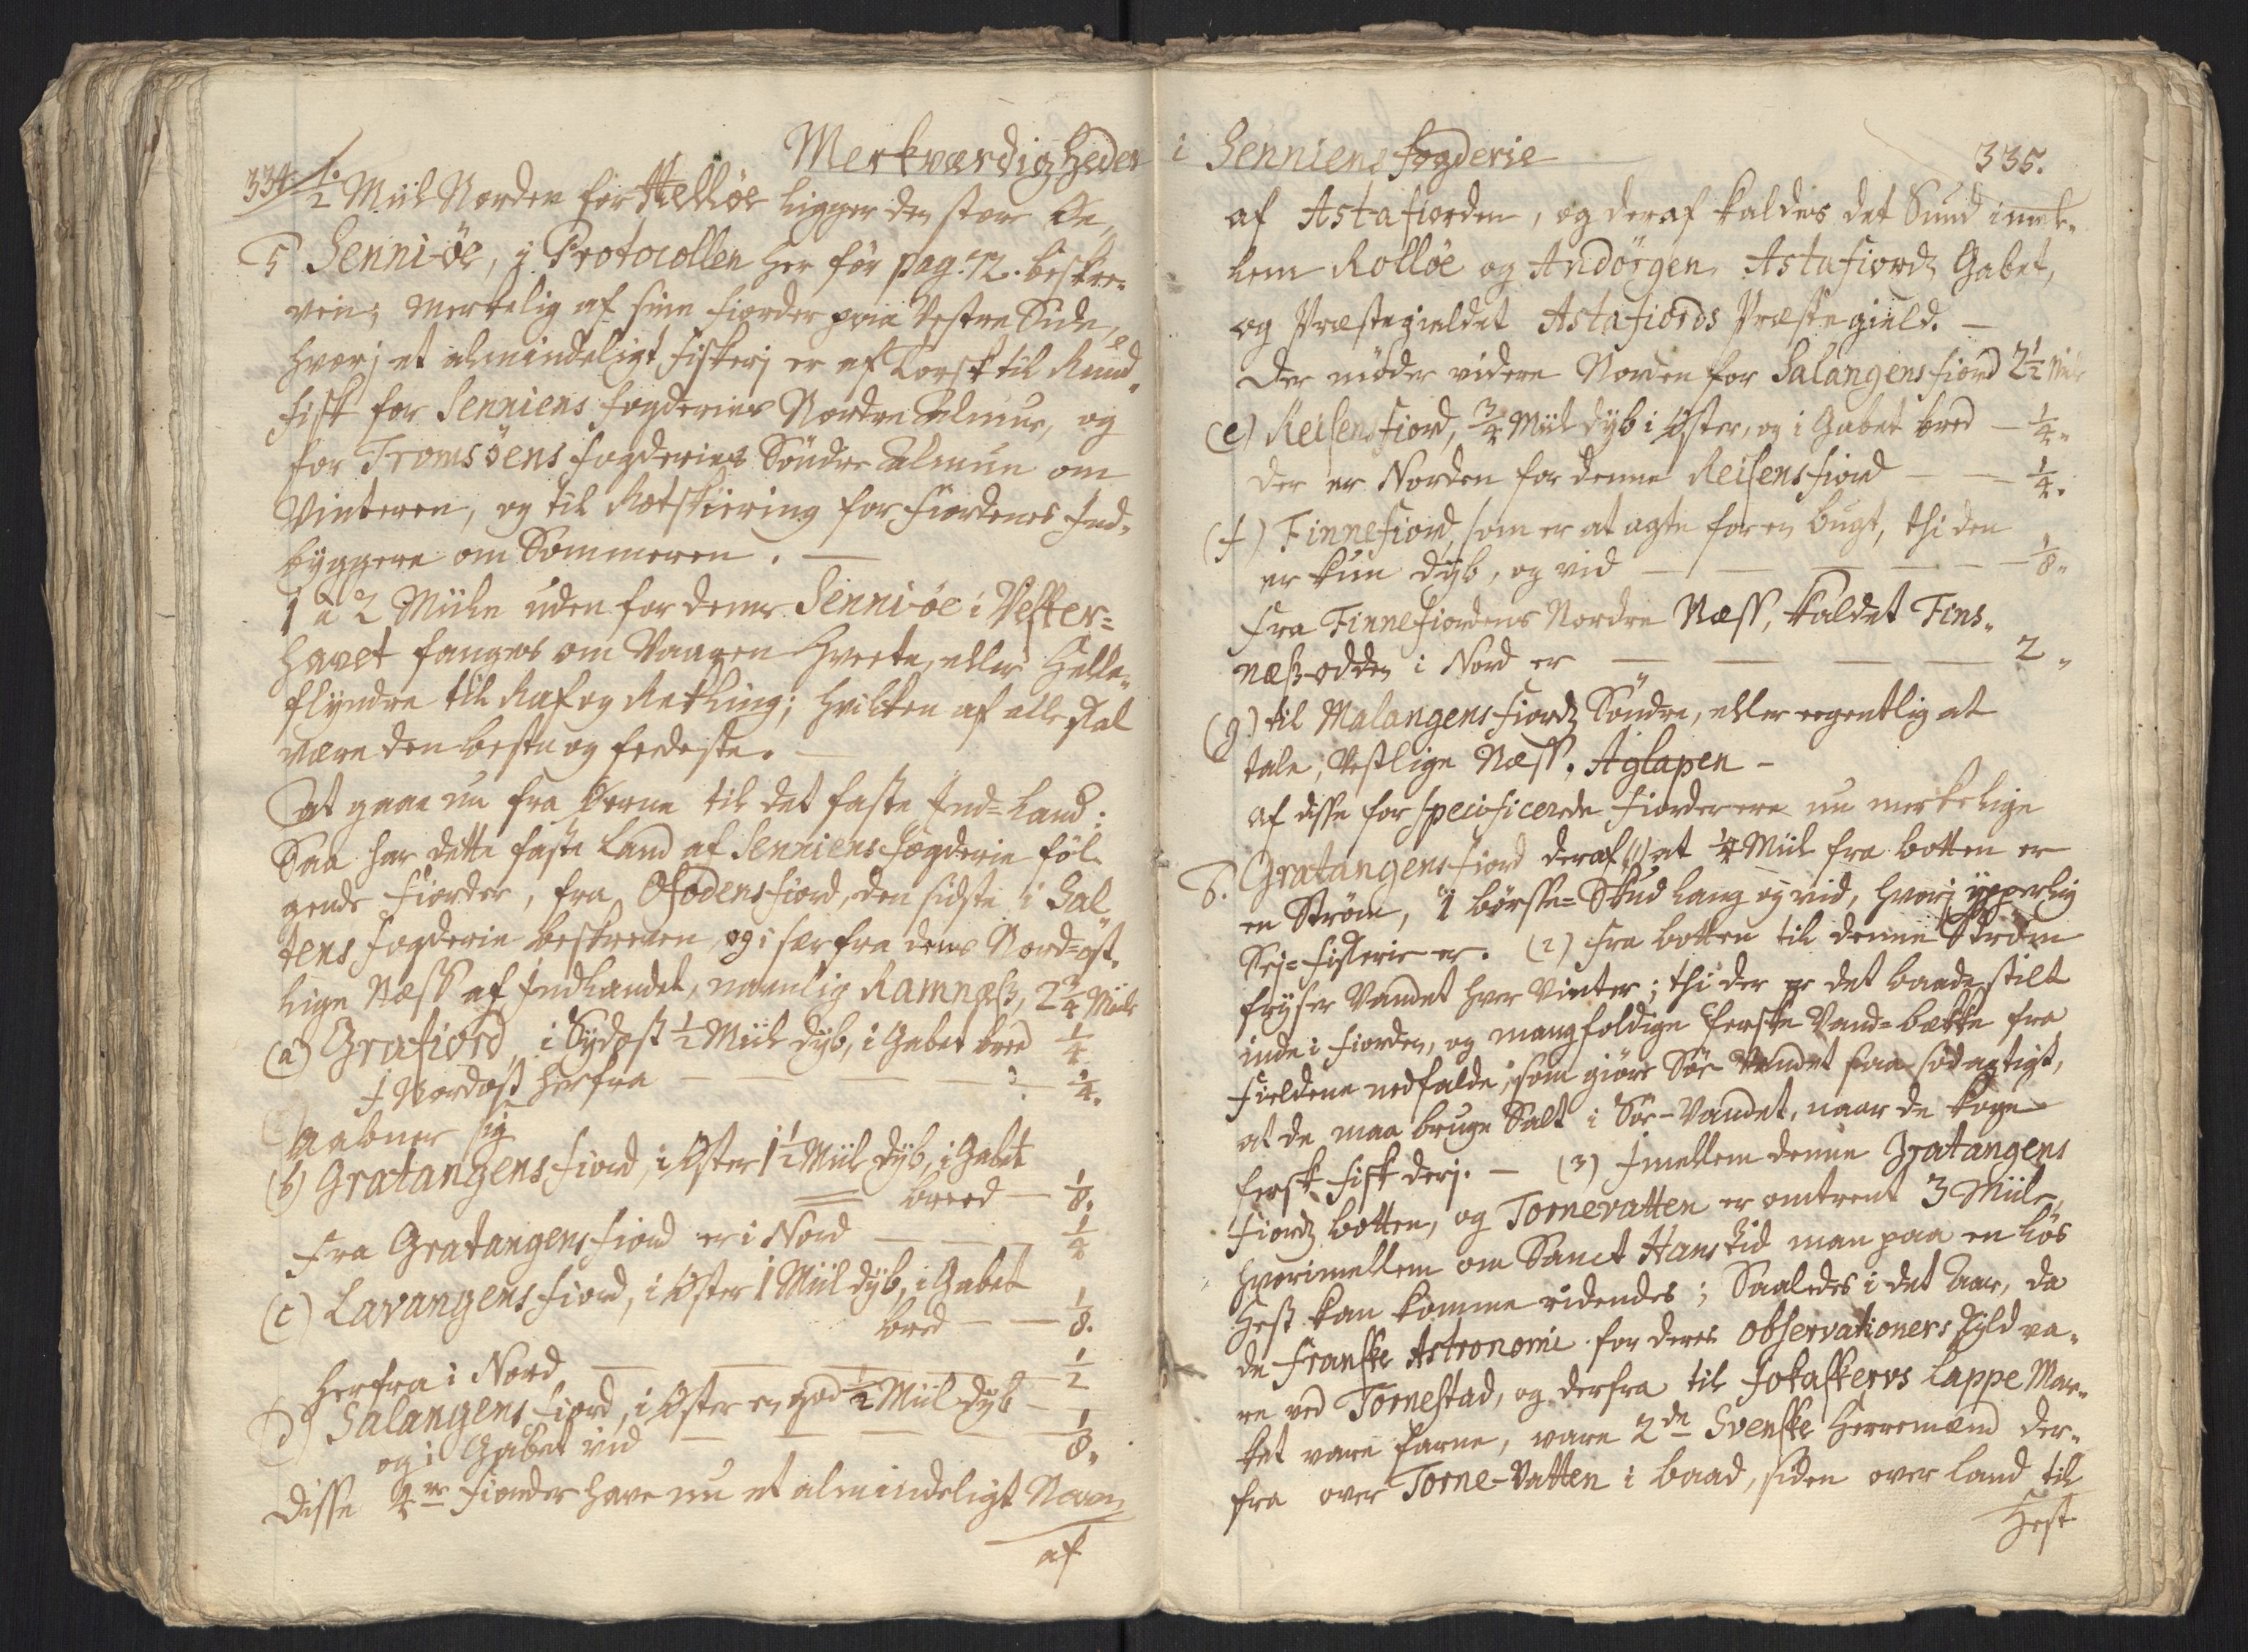 Merkværdigheder
334.
1/2 Miil Norden for Helløe ligger den store Øe
5 Senni-øe, j Protocollen her før pag. 72. beskre-
ven; merkelig af sine Fiorder paa Vestre Side,
hvorj et almindeligt Fiskerj er af Torsk til Rund-
fisk for Senniens Fogderies Nordre Almue, og
for Tromsöens Fogderies Söndre Almue om
Vinteren, og til Rotskiering for Fiordenes Ind-
byggere om Sommeren. —
1 à 2 Miile uden for denne Senni-øe i Vester-
havet fanges om Vaaren Hveete, eller Helle-
flyndre til Raf og Rekling; hvilken af alle skal
være den beste og fedeste. —
At gaae nu fra Øerne til det faste Ind-Land:
Saa har dette faste Land af Senniens Fogderie föl-
gende Fiorder, fra Ofodens Fiord, den sidste i Sal-
tens Fogderie beskreven, og i sær fra dens Nord-ost-
lige Næss af Indlandet, nemlig Ramnæss, 2 3/4 Miile
(a) Grafiord, i Sydost 1/2 Miil dyb, i Gabet bred 1/4
I Nordost herfra — — — 1/4.
aabner sig
(b) Gratangens Fiord, i Oster 1 1/2 Miil dyb, i Gabet
breed — 1/8.
Fra Gratangens Fiord er i Nord — — 1/4
(c) Lavangens Fiord, i Oster 1 Miil dyb, i Gabet
bred — — 1/8.
Herfra i Nord — — — 1/2
(d) Salangens Fiord, i Oster en god 1/2 Miil dyb —
og i Gabet vid — — — — 1/8.
Disse 4re Fiorder have nu et almindeligt Navn
af
i Senniens Fogderie
335.
af Astafiorden, og deraf kaldes det Sund imel-
lem Rolløe og Andörgen, Astafiords Gabet,
og Præstegieldet Astafiords Præstegield. —
Der möder videre Norden for Salangens Fiord 2 1/2 Miile
(e) Reisens Fiord, 3/4 Miil dyb i Oster, og i Gabet bred — 1/4.
Der er Norden for denne Reisens Fiord — — 1/4.
(f) Finnefiord, som er at agte for en bugt, thi den
er kun dyb, og vid — — — — — 1/8.
Fra Finnefiordens Nordre Næss, kaldet Fins-
næss-odden i Nord er — — — — 2.
(g) til Malangens Fiords Söndre, eller eegentlig at
tale, Vestlige Næss, Aglapen —
Af disse for specificerde Fiorder ere nu merkelige
6. Gratangens Fiord deraf (1) at 1/4 Miil fra botten er
en Ström, 1 börsse-Skud lang og vid, hvorj ypperlig
Sej-Fiskerie er. (2) Fra botten til denne Ström
fryser Vandet hver Vinter; thi der er det baade stilt
inde i Fiorden, og mangfoldige ferske Vand-bække fra
Fieldene nedfalde, som giöre Söe-Vandet saa södagtigt,
at de maa bruge Salt i Söe-Vandet, naar de koge
fersk Fisk derj. — (3) Imellem denne Gratangens
Fiords botten, og Tornevatten er omtrent 3 Miile,
hvorimellem om Sanct Hans tid man paa en lös
Hest kan komme ridendes; Saaledes i det Aar, da
de Franske Astronomi for deres Observationers Skyld va-
re ved Tornestad, og derfra til Jokaskervs Lappe Mar-
ket vare farne, vare 2de Svenske Herremænd der-
fra over Torne-Vatten i baad, siden over Land til
Hest